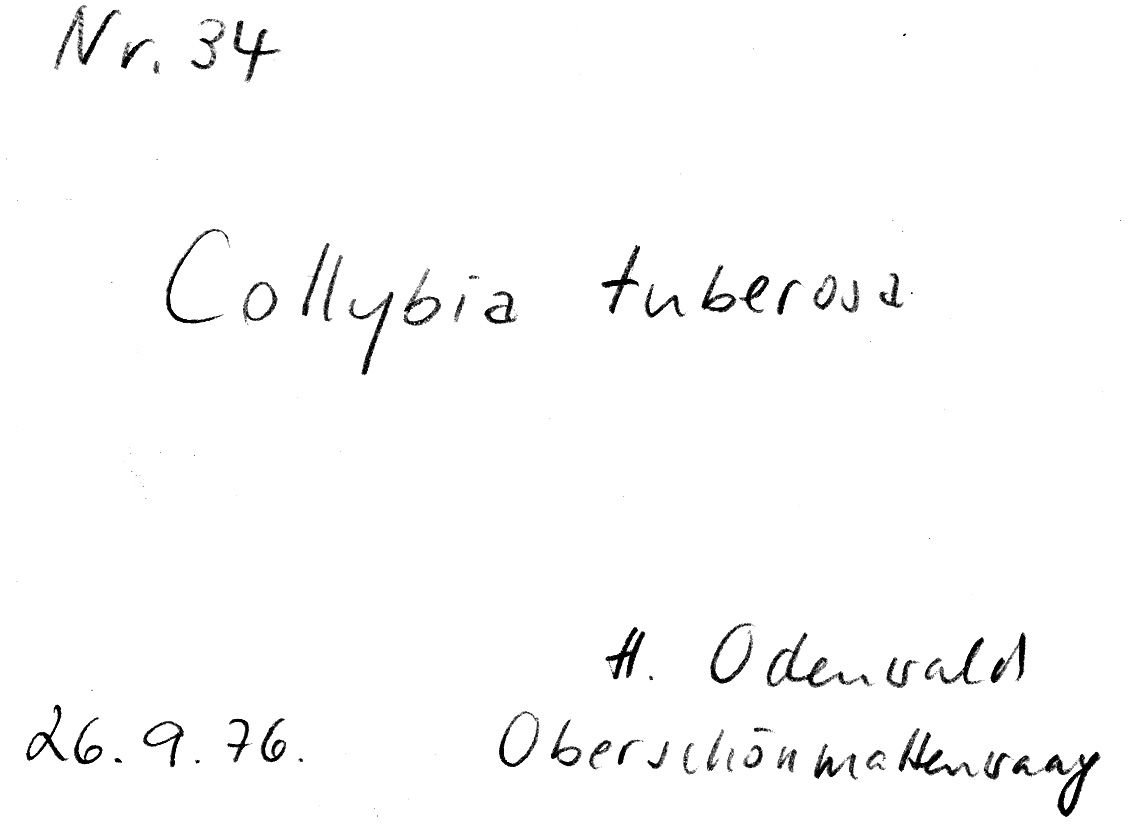 Nr. 34
Collybia tuberosa
H. Odenwald
26.9.76. Oberschönmattenwaag